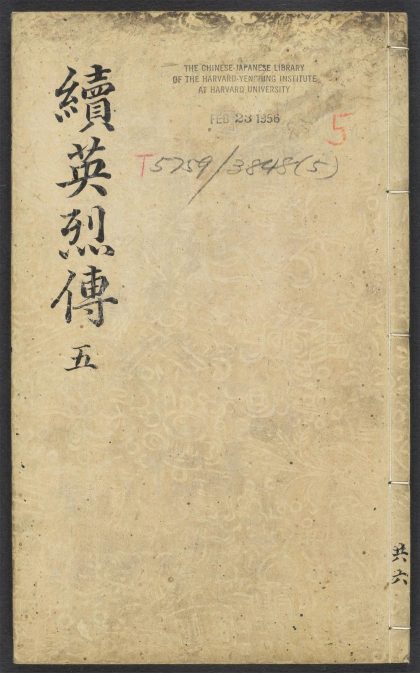 續英烈傳 五
THE CHINESE-JAPANESE LIBRARY
OF THE HARVARD-YENCHING INSTITUTE
AT HARVARD UNIVERSITY
FEB 23 1956
5
T5759/3848(5)
共六